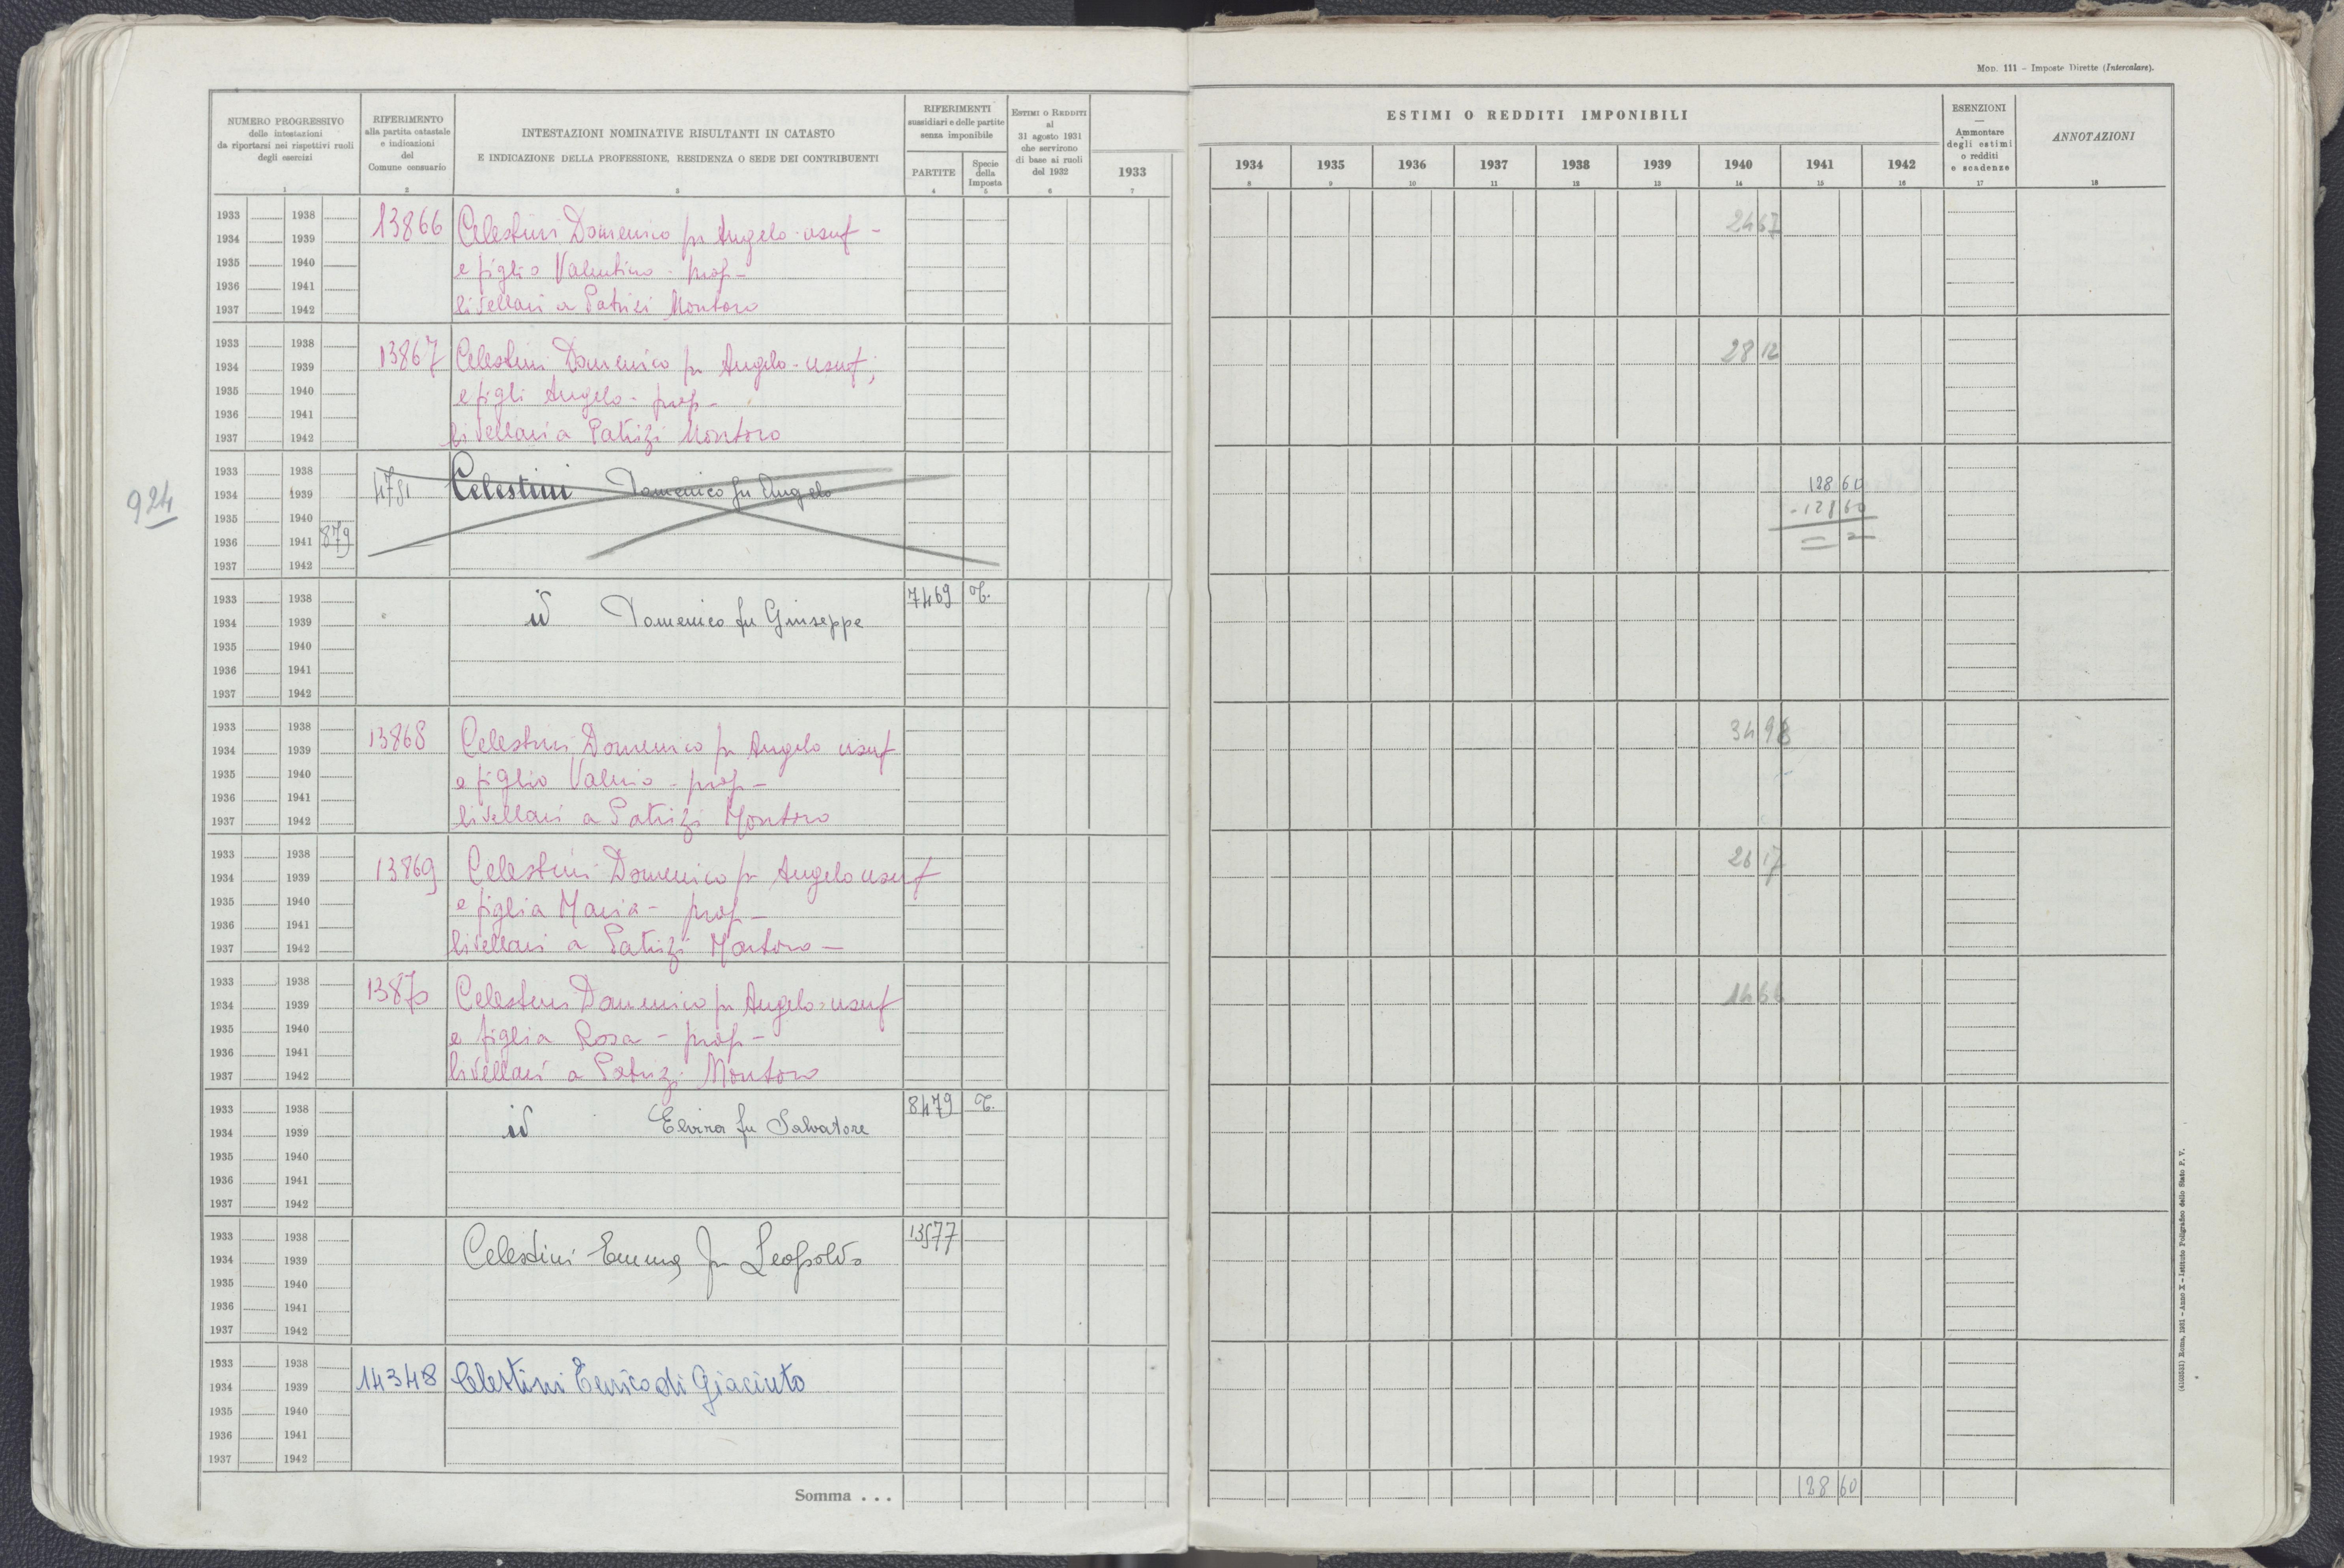 Mod. 111 – Imposte Dirette (Intercalare).
NUMERO PROGRESSIVO
delle intestazioni
da riportarsi nei rispettivi ruoli
degli esercizi
1
RIFERIMENTO
alla partita catastale
e indicazioni
del
Comune censuario
2
INTESTAZIONI NOMINATIVE RISULTANTI IN CATASTO
E INDICAZIONE DELLA PROFESSIONE, RESIDENZA O SEDE DEI CONTRIBUENTI
3
RIFERIMENTI
sussidiari e delle partite
senza imponibile
PARTITE
4
Specie
della
Imposta
5
Estimi o Redditi
al
31 agosto 1931
che servirono
di base ai ruoli
del 1932
6
1933
7
ESTIMI O REDDITI IMPONIBILI
1934 1935 1936 1937 1938 1939 1940 1941 1942
8 9 10 11 12 13 14 15 16
ESENZIONI
—
Ammontare
degli estimi
o redditi
e scadenze
17
ANNOTAZIONI
18
1933 1938 13866 Celestini Domenico fu Angelo - usuf - 24 67
1934 1939
1935 1940 e figlio Valentino - prop -
1936 1941
1937 1942 livellari a Patrizi Montoro
1933 1938 13867 Celestini Domenico fu Angelo - usuf; 28 12
1934 1939
1935 1940 e figli Angelo - prop -
1936 1941
1937 1942 livellari a Patrizi Montoro
924
1933 1938
1934 1939 4781 Celestini Domenico fu Angelo 128 60
1935 1940 - 128 60
1936 1941 879 =
1937 1942
1933 1938 7469 T.
1934 1939 id Domenico fu Giuseppe
1935 1940
1936 1941
1937 1942
1933 1938 13868 Celestini Domenico fu Angelo usuf 34 98
1934 1939
1935 1940 e figlio Valerio - prop -
1936 1941
1937 1942 livellari a Patrizi Montoro
1933 1938 13869 Celestini Domenico fu Angelo usuf 26 17
1934 1939
1935 1940 e figlia Maria - prop -
1936 1941
1937 1942 livellari a Patrizi Montoro -
1933 1938 13870 Celestini Domenico fu Angelo = usuf 14 66
1934 1939
1935 1940 e figlia Rosa - prop -
1936 1941
1937 1942 livellari a Patrizi Montoro
1933 1938 8479 T.
1934 1939 id Elvira fu Salvatore
1935 1940
1936 1941
1937 1942
1933 1938 13577
1934 1939 Celestini Emma fu Leopoldo
1935 1940
1936 1941
1937 1942
1933 1938
1934 1939 14348 Celestini Enrico di Giacinto
1935 1940
1936 1941
1937 1942
Somma . . . 128 60
(4103551) Roma, 1931 – Anno X – Istituto Poligrafico dello Stato P. V.